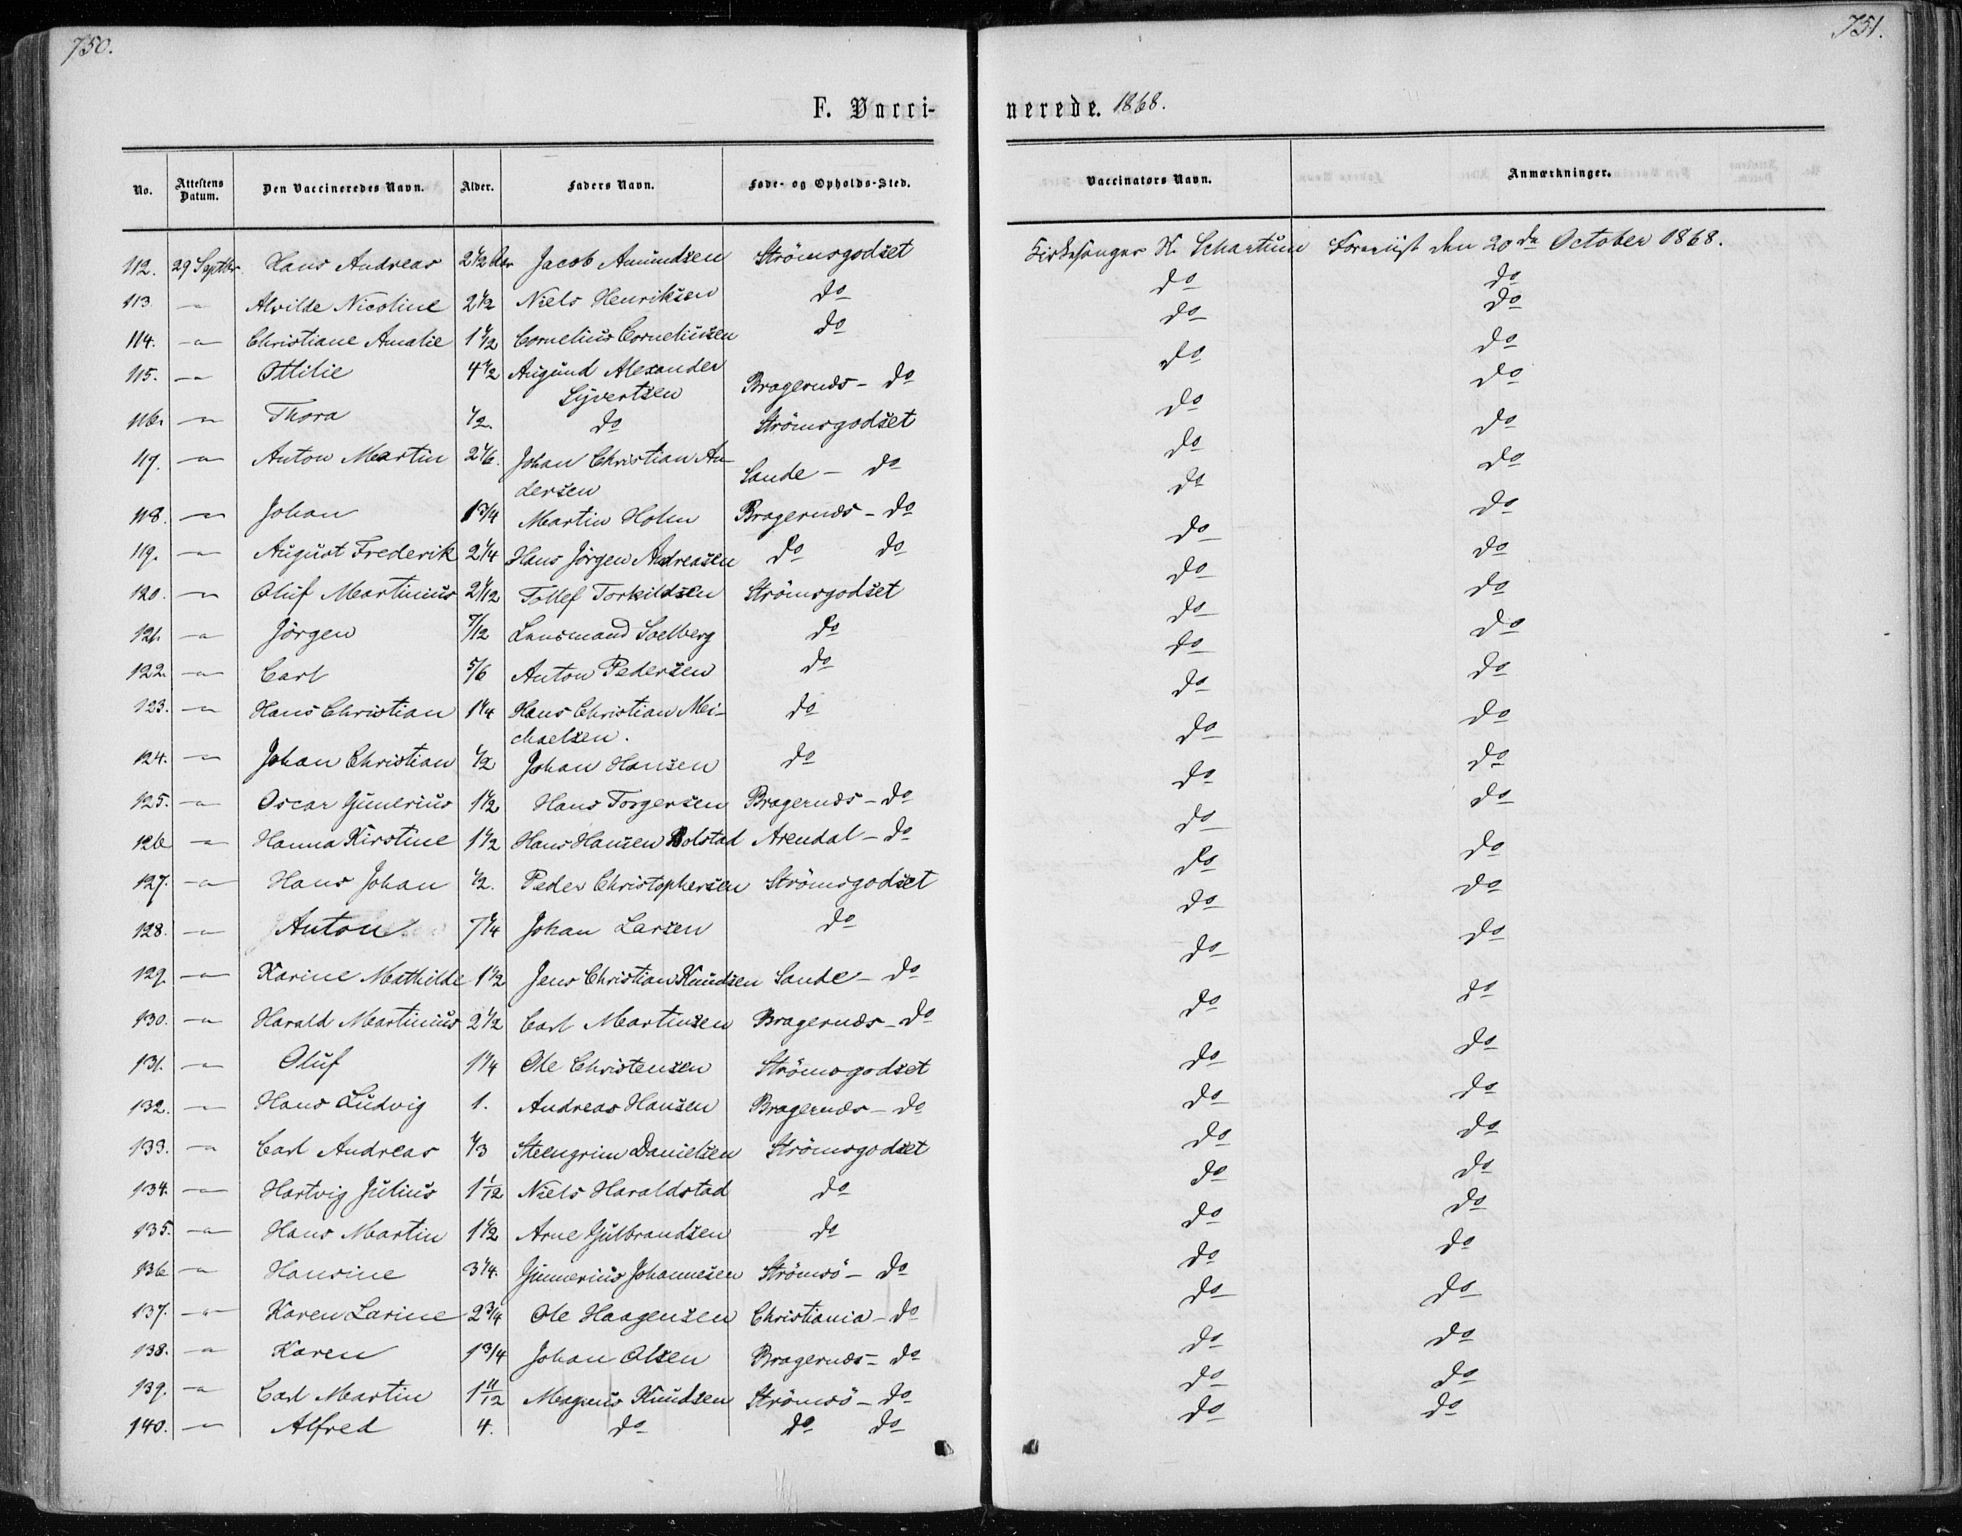 750.
751.
F. Vacci-
nerede. 1868.
No. Attestens Datum. Den Vaccineredes Navn. Alder. Faders Navn. Føde- og Opholds-Sted. Vaccinators Navn. Anmærkninger.
112. 29 Septbr. Hans Andreas 2 1/2 Aar Jacob Amundsen Strömsgodset Kirkesanger H. Schartum Foreviist den 20de October 1868.
113. — Alvilde Nicoline 2 1/2 Niels Henriksen do do do
114. — Christiane Amalie 1 1/2 Cornelius Corneliussen do do do
115. — Ottilie 4 1/2 Augund Alexander
Syvertsen Bragernæs - do do do
116. — Thora 1/2. do Strömsgodset do do
117. — Anton Martin 2 1/6. Johan Christian An-
dersen Sande - do do do
118. — Johan 1 3/4 Martin Holm Bragernæs - do do do
119. — August Frederik 2 1/4 Hans Jörgen Andreasen do do do do
120. — Oluf Martinius 2 1/12 Tollef Torkildsen Strömsgodset do do
121. — Jörgen 7/12 Lensmand Soelberg do do do
122. — Carl 5/6 Anton Pedersen do do do
123. — Hans Christian 1 1/4 Hans Christian Mei-
chaelsen. do do do
124. — Johan Christian 1/2 Johan Hansen do do do
125. — Oscar Gunerius 1 1/2 Hans Torgersen Bragernæs - do do do
126 — Hanna Kirstine 1 1/2 Hans Hansen Bolstad Arendal - do do do
127. — Hans Johan 1/2. Peder Christophersen Strömsgodset do do
128. — Anton 7 1/4 Johan Larsen do do do
129. — Karine Mathilde 1 1/2 Jens Christian Knudsen Sande - do do do
130. — Harald Martinius 2 1/2 Carl Martinsen Bragernæs - do do do
131. — Oluf 1 1/4 Ole Christensen Strömsgodset do do
132. — Hans Ludvig 1. Andreas Hansen Bragernæs - do do do
133. — Carl Andreas 1/3 Steengrim Danielsen Strömsgodset do do
134. — Hartvig Julius 1 1/12 Niels Haraldstad do do do
135. — Hans Martin 1 1/2 Arne Gulbrandsen do do do
136 — Hansine 3 1/4. Gunnerius Johannesen Strömsö - do do do
137. — Karen Larine 2 3/4 Ole Haagensen Christiania - do do do
138. — Karen 1 3/4 Johan Olsen Bragernæs - do do do
139. — Carl Martin 1 11/12 Magnus Knudsen Strömsö - do do do
140. — Alfred 4. do do do do do